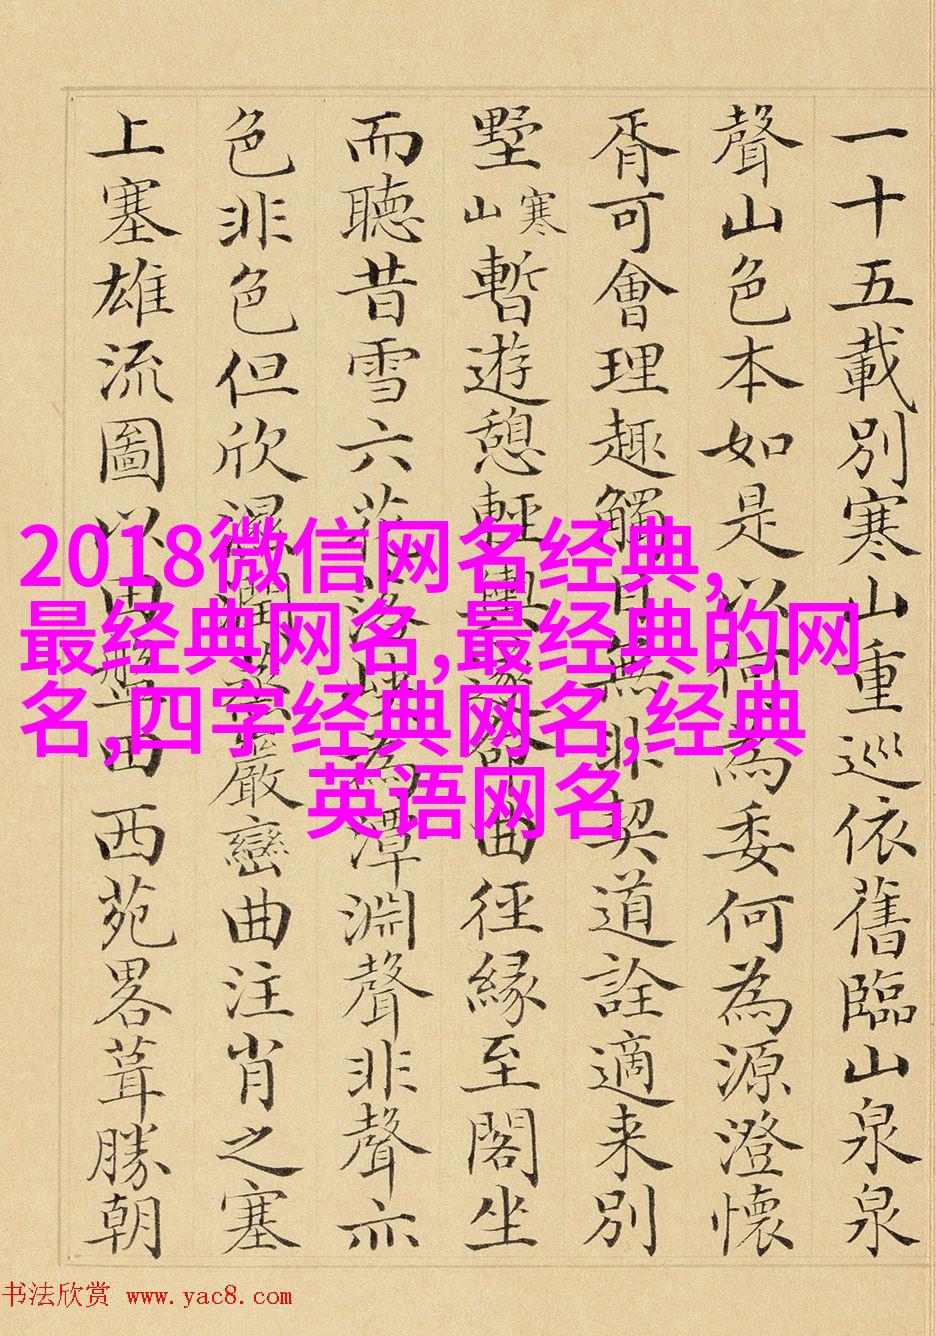 一十五載別寒山重巡依舊臨山泉泉
聲山色本如是以何為委何為源澄懷
胥可會理趣觸目無非契道詮適来別
墅寒山暫遊憩輕輿曲徑縁至閣坐
而聽昔雪六花落此為潭淵聲非聲亦
色非色但欣濕潤巖巒曲注肖之塞
上塞雄流圖以田西苑畧葺勝朝
2018微信网名经典,
最经典网名,最经典的网
名,四字经典网名,经典
英语网名
书法欣赏 www.yac8.com